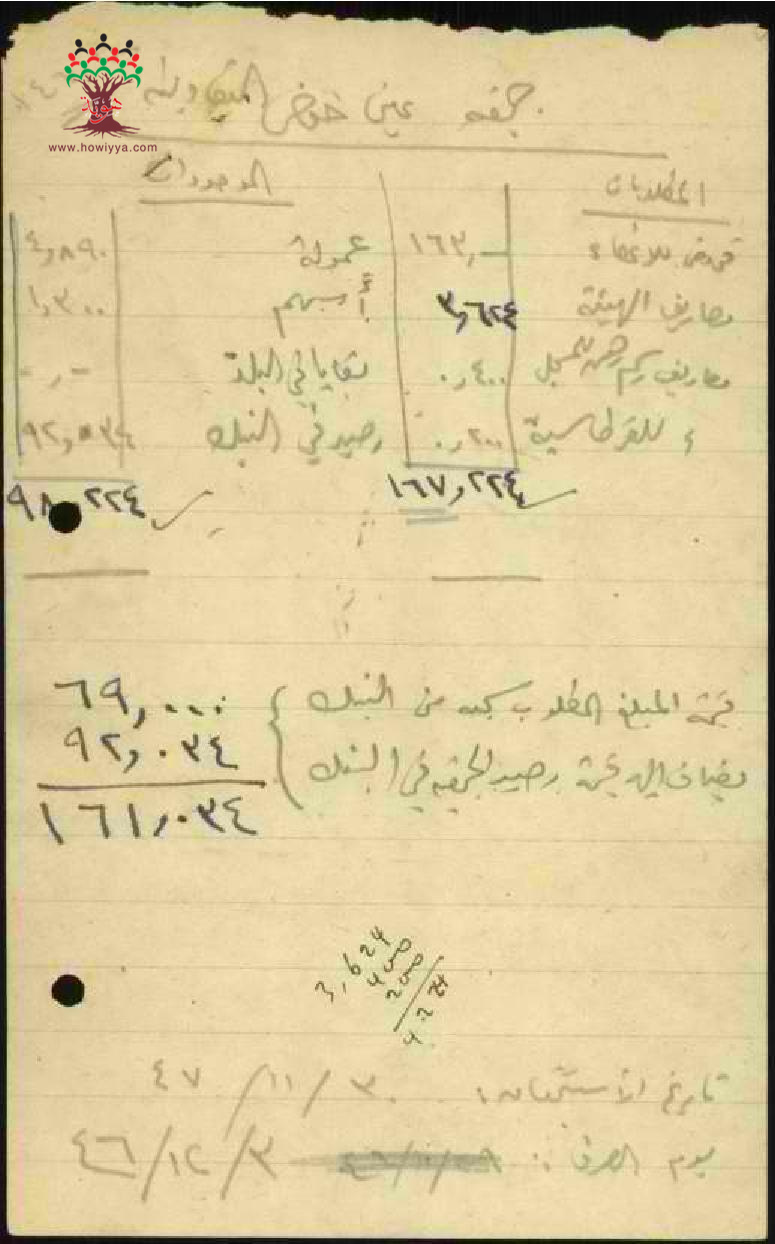 www.howiyya.com
جمعية عين حوض التعاونية
المطلوبات الموجودات
قروض للاعضاء ١٦٣,— عمولة ٤,٨٩٠
مصاريف الهيئة ٣,٦٢٤ أسهم ١,٣٠٠
مصاريف رسم رهن تسجيل ٠,٤٠٠ بقايا في البلد -,-
للقرطاسية ٠,٢٠٠ رصيد في البنك ٩٢,٠٣٤
١٦٧,٢٢٤ ٩٨,٢٢٤
قيمة المبلغ المطلوب سحبه من البنك ٦٩,٠٠٠
يضاف اليه قيمة رصيد الجمعية في البنك ٩٢,٠٣٤
١٦١,٠٣٤
3,624
400
200
4,224
تاريخ الأستحقاق: ٣٠/١١/٤٧
يوم الصرف: ٣/١٢/٤٦